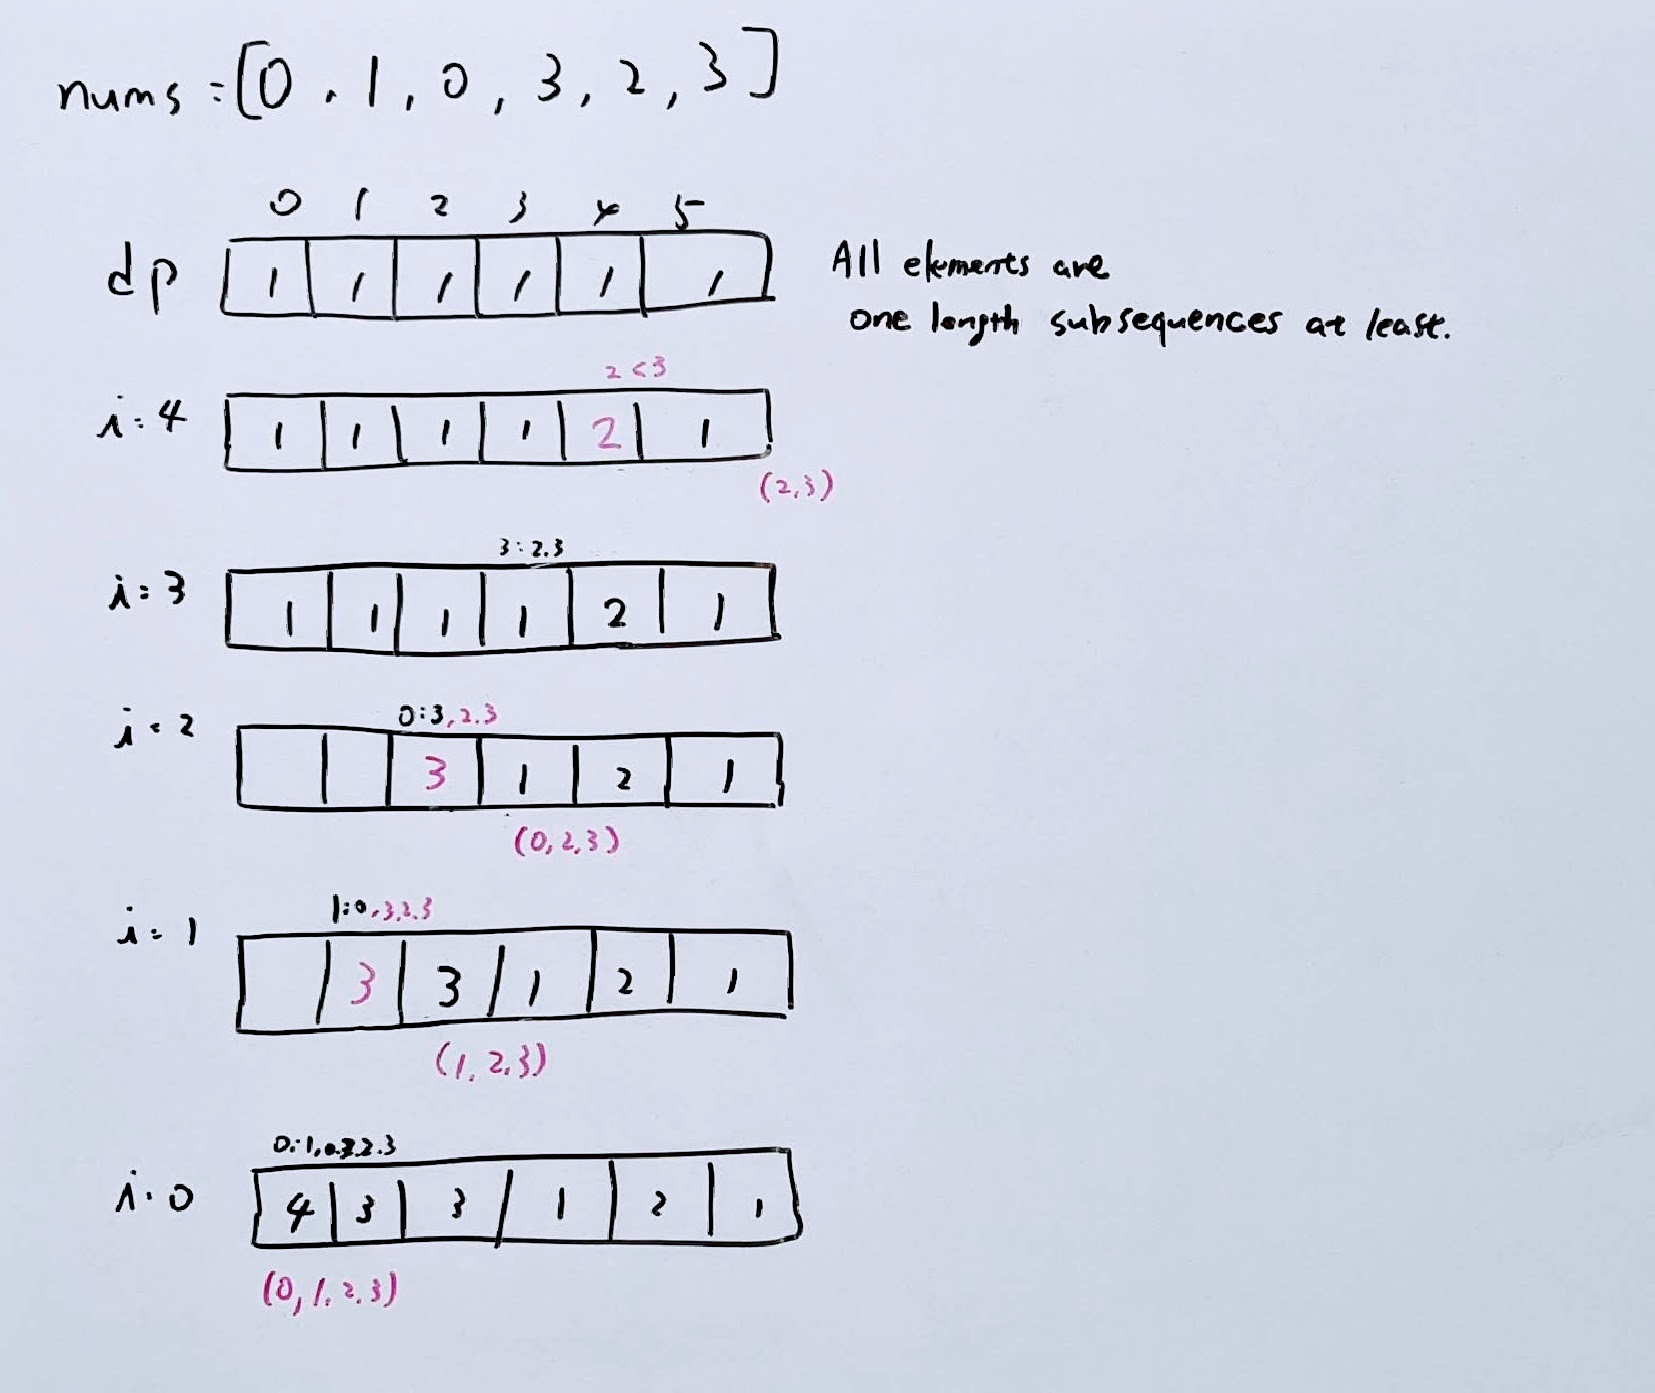 nums = [0, 1, 0, 3, 2, 3]
0 1 2 3 4 5
dp 1 1 1 1 1 1
All elements are
one length subsequences at least.
2 < 3
i = 4 1 1 1 1 2 1
(2,3)
3 : 2.3
i = 3 1 1 1 1 2 1
0:3,2.3
i = 2 3 1 2 1
(0,2,3)
1:0,3,2.3
i = 1 3 3 1 2 1
(1,2,3)
0:1,0.3.2.3
i = 0 4 3 3 1 2 1
(0,1,2,3)